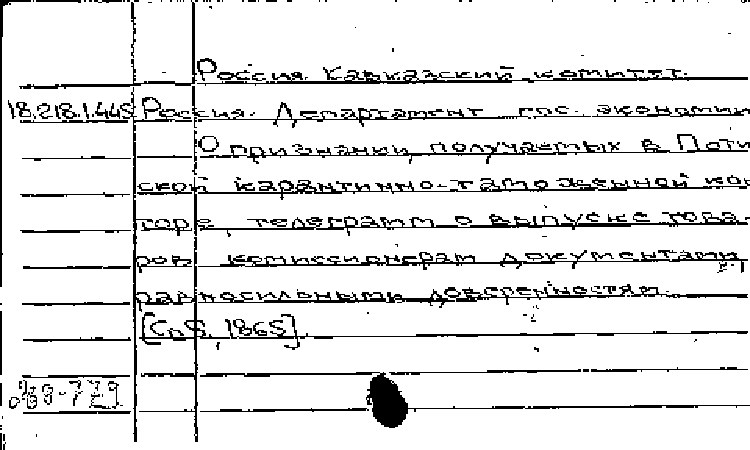 Россия. Кавказский комитет.
18.218.1.445 Россия. Департамент гос. экономии
О признании, получаемых в Поти
ской карантинно-таможенной кон
торе, телеграмм о выпуске това-
ров комиссионерам документами,
равносильными доверенностям.
[СПб, 1865].